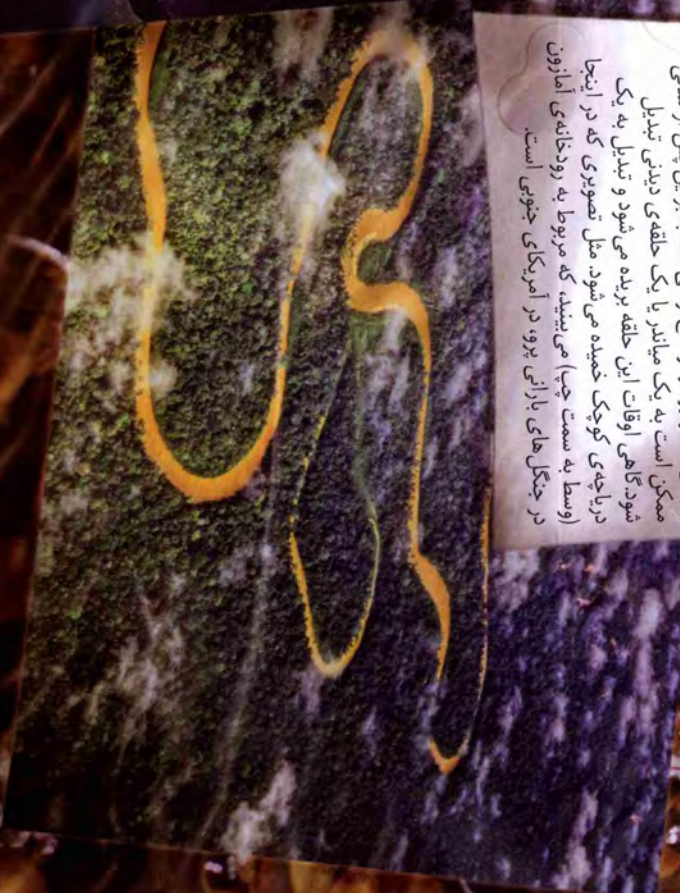 ممکن است به یک میاندر یا یک حلقه‌ی دیدنی تبدیل
شود.گاهی اوقات این حلقه بریده می‌شود و تبدیل به یک
دریاچه‌ی کوچک خمیده می‌شود. مثل تصویری که در اینجا
(وسط به سمت چپ) می‌بینید، که مربوط به رودخانه‌ی آمازون
در جنگل های بارانی پرو، در آمریکای جنوبی است.